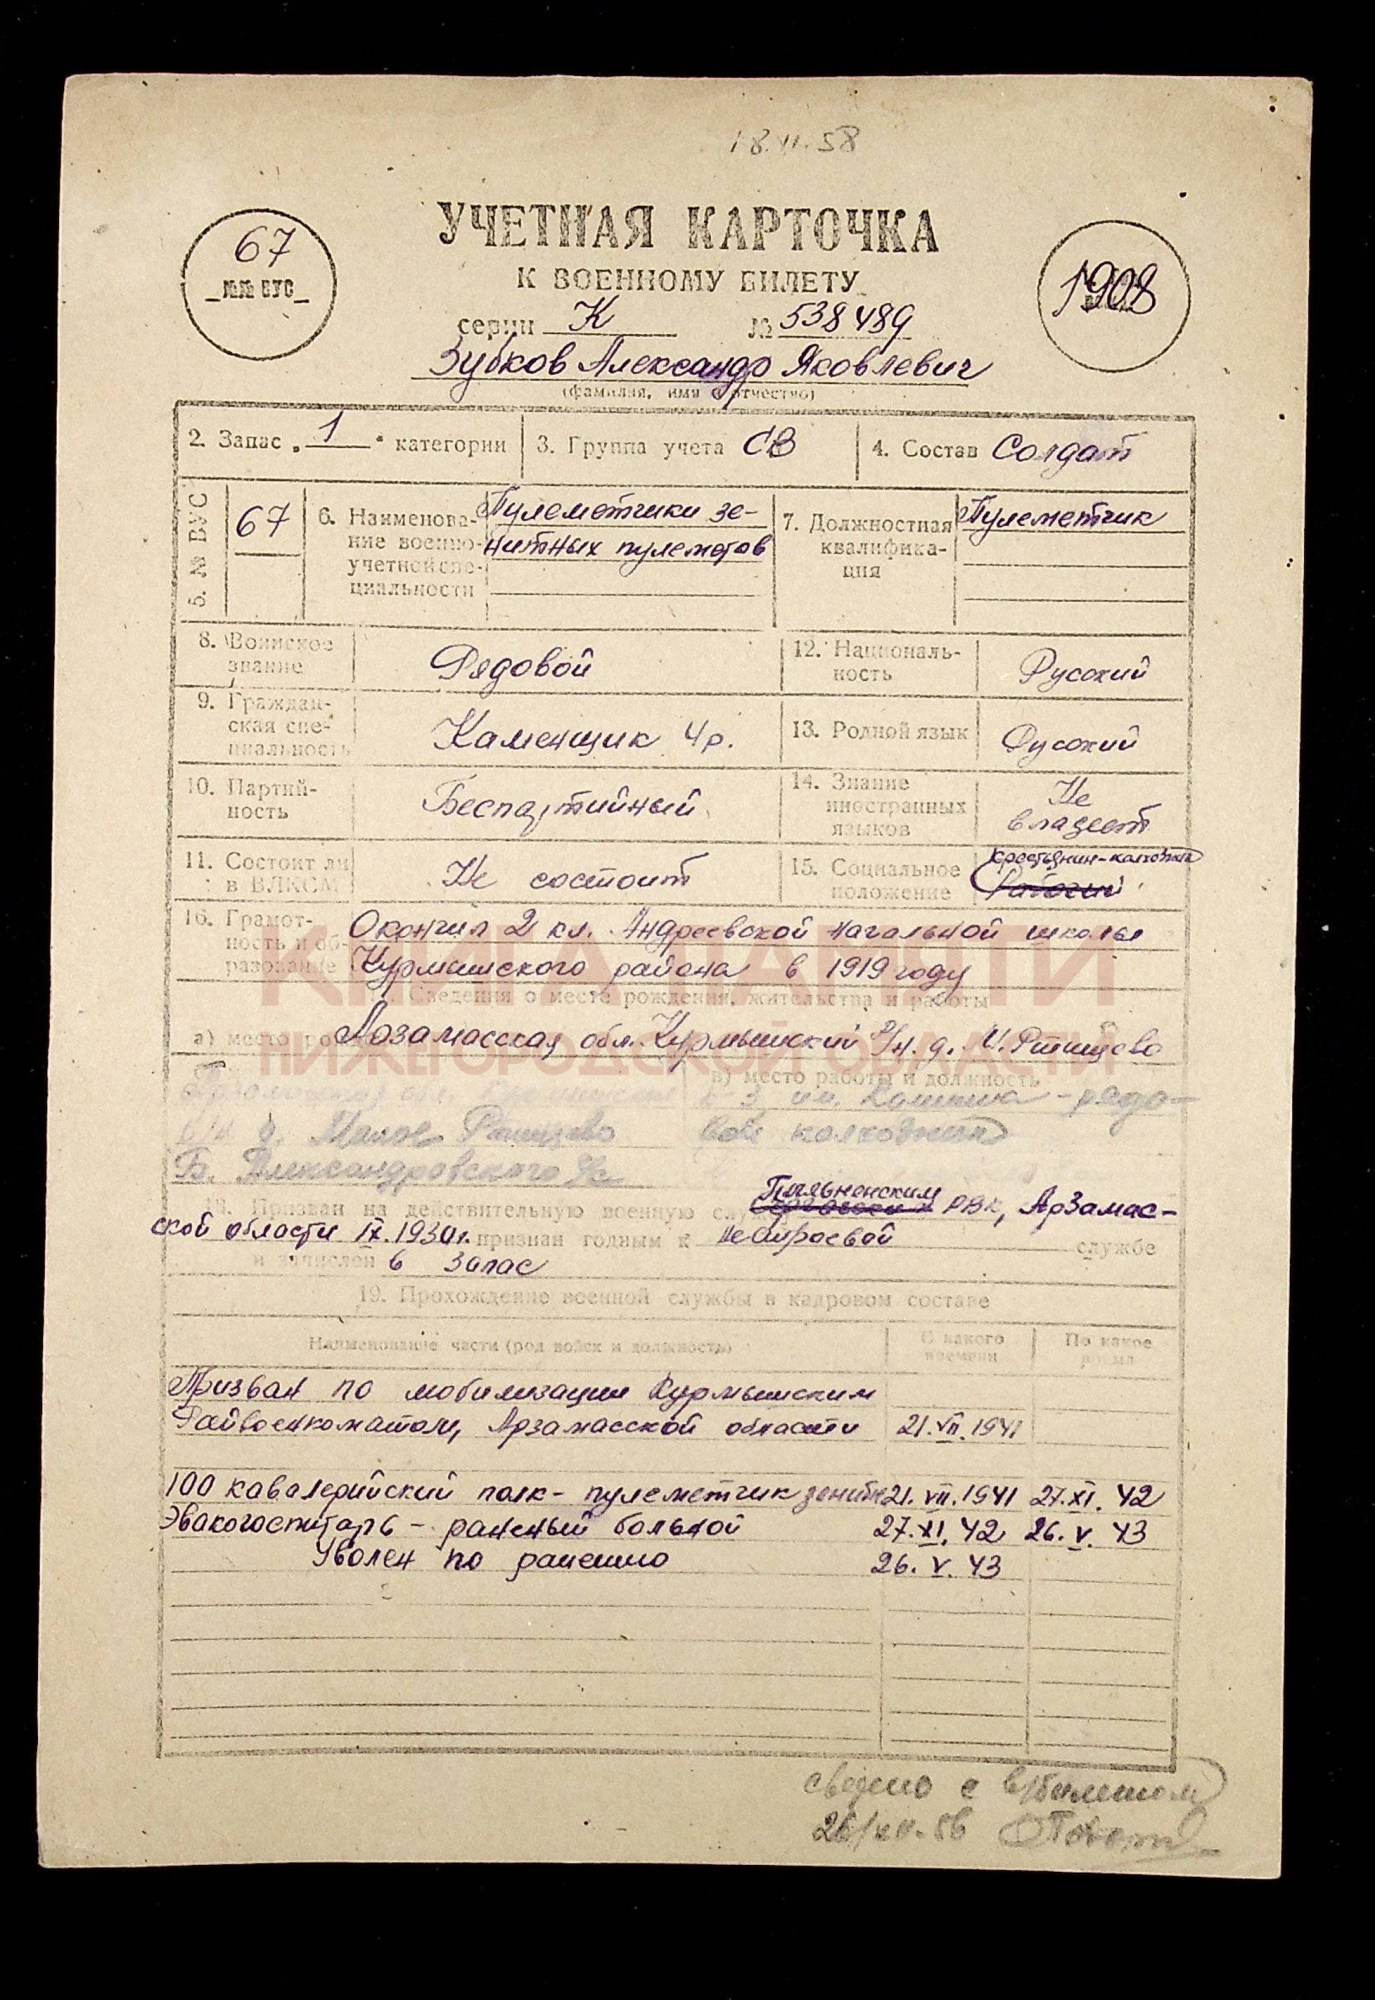 18.VI.58
УЧЕТНАЯ КАРТОЧКА
К ВОЕННОМУ БИЛЕТУ
67
№№ ВУС
1908
серии К № 538489
Зубков Александр Яковлевич
(фамилия, имя и отчество)
2. Запас „ 1 " категории
3. Группа учета СВ
4. Состав Солдат
5. № ВУС
67
6. Наименова-
ние военно-
учетной спе-
циальности
Пулеметчики зе-
нитных пулеметов
7. Должностная
квалифика-
ция
Пулеметчик
8. Воинское
звание
Рядовой
12. Националь-
ность
Русский
9. Граждан-
ская спе-
циальность
Каменщик 4р.
13. Родной язык
Русский
10. Партий-
ность
Беспартийный
14. Знание
иностранных
языков
Не
владеет
11. Состоит ли
в ВЛКСМ
Не состоит
15. Социальное
положение
крестьянин-колхозник
Рабочий
16. Грамот-
ность и об-
разование
Окончил 2 кл. Андреевской начальной школы
Курмышского района в 1919 году
КНИГА ПАМЯТИ
НИЖЕГОРОДСКОЙ ОБЛАСТИ
17. Сведения о месте рождения, жительства и работы
а) место Арзамасская обл. Курмышский р/н. д. И. Ртищево
в) место работы и должность
д. Малое Ртищево
вой колхозник
Б. Александровского
18. Призван на действительную военную службу
Пильненским РВК, Арзамас-
ской области IX. 1930г. признан годным к нестроевой службе
и зачислен в запас
19. Прохождение военной службы в кадровом составе
Наименование части (род войск и должность)
С какого
времени
По какое
время
Призван по мобилизации Курмышским
Райвоенкоматом, Арзамасской области 21.VII.1941
100 кавалерийский полк - пулеметчик зенитн 21. VII.1941 27.XI. 42
Эвакогоспиталь - раненый больной 27.XI. 42 26. V. 43
Уволен по ранению 26. V. 43
сверено с в/билетом